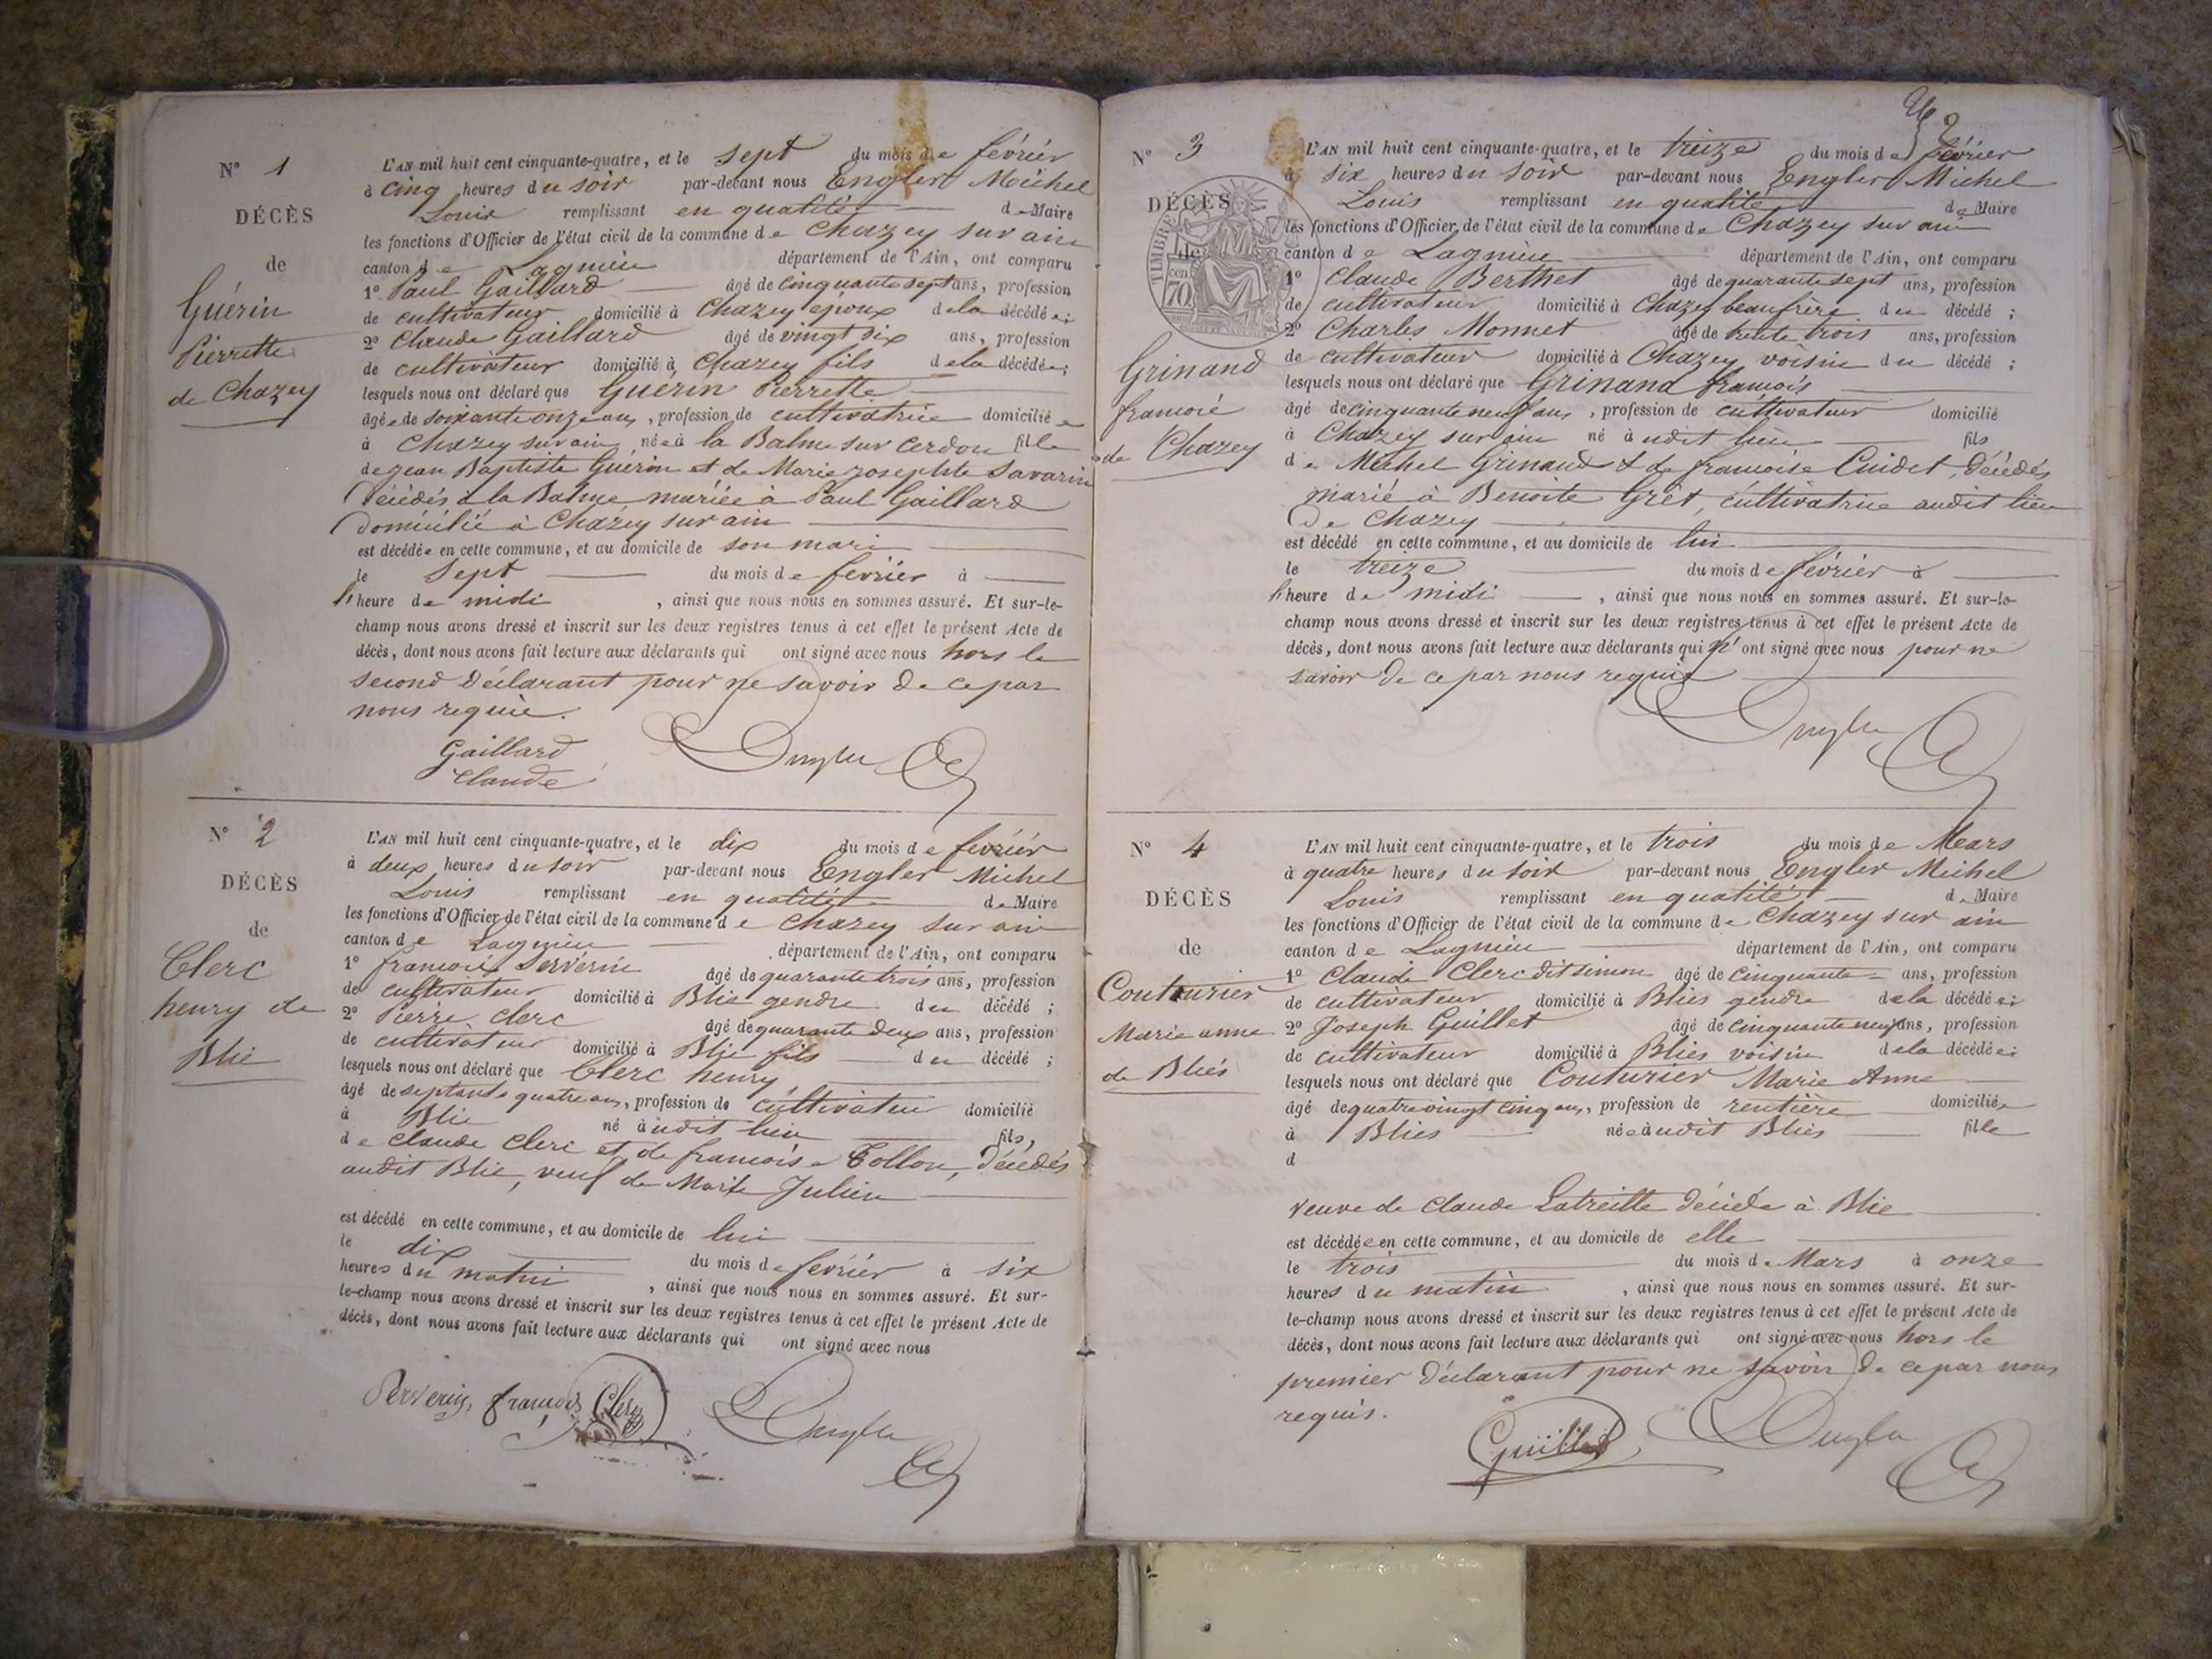 N° 1
DÉCÈS
de
Guérin
Pierrette
de Chazey
L'AN mil huit cent cinquante-quatre, et le sept du mois de février
à cinq heures du soir par-devant nous Engler Michel
Louis remplissant en qualité de Maire
les fonctions d'Officier de l'état civil de la commune de Chazey sur ain
canton de Lagnieu département de l'Ain, ont comparu
1° Paul Gaillard âgé de cinquante sept ans, profession
de cultivateur domicilié à Chazey époux de la décédée;
2° Claude Gaillard âgé de vingt six ans, profession
de cultivateur domicilié à Chazey fils de la décédée;
lesquels nous ont déclaré que Guérin Pierrette
âgée de soixante onze ans, profession de cultivatrice domiciliée
à Chazey sur ain, née à la Balme sur Cerdon fille
de jean Baptiste Guérin et de Marie josephte Savarin
Décédés à la Balme mariée à Paul Gaillard
Domicilié à Chazey sur ain
est décédée en cette commune, et au domicile de son mari
le Sept du mois de fevrier à
l'heure de midi, ainsi que nous nous en sommes assuré. Et sur-le-
champ nous avons dressé et inscrit sur les deux registres tenus à cet effet le présent Acte de
décès, dont nous avons fait lecture aux déclarants qui ont signé avec nous hors le
second Déclarant pour ne savoir De ce par
nous requis.
Gaillard
Claude
Engler
N° 2
DÉCÈS
de
Clerc
henry de
Blie
L'AN mil huit cent cinquante-quatre, et le dix du mois de février
à deux heures du soir par-devant nous Engler Michel
Louis remplissant en qualité de Maire
les fonctions d'Officier de l'état civil de la commune de Chazey sur ain
canton de Lagnieu département de l'Ain, ont comparu
1° francois Serverin âgé de quarante trois ans, profession
de cultivateur domicilié à Blie gendre du décédé;
2° Pierre Clerc âgé de quarante deux ans, profession
de cultivateur domicilié à Blie fils du décédé;
lesquels nous ont déclaré que Clerc henry
âgé de septante quatre ans, profession de cultivateur domicilié
à Blie né audit lieu fils,
de Claude Clerc et de francoise Tollon, Décédés
audit Blie, veuf de Marie Julien
est décédé en cette commune, et au domicile de lui
le dix du mois de février à six
heures du matin, ainsi que nous nous en sommes assuré. Et sur-
le-champ nous avons dressé et inscrit sur les deux registres tenus à cet effet le présent Acte de
décès, dont nous avons fait lecture aux déclarants qui ont signé avec nous
Serverin, francois Clerc Engler
N° 3
DÉCÈS
de
TIMBRE
70
Grinand
francois
de Chazey
L'AN mil huit cent cinquante-quatre, et le treize du mois de février
à six heures du soir par-devant nous Engler Michel
Louis remplissant en qualité de Maire
les fonctions d'Officier de l'état civil de la commune de Chazey sur ain
canton de Lagnieu département de l'Ain, ont comparu
1° Claude Berthet âgé de quarante sept ans, profession
de cultivateur domicilié à Chazey beaufrère du décédé;
2° Charles Monnet âgé de trente trois ans, profession
de cultivateur domicilié à Chazey voisin du décédé;
lesquels nous ont déclaré que Grinand francois
âgé de cinquante neuf ans, profession de cultivateur domicilié
à Chazey sur ain né audit lieu fils
de Michel Grinand & de francoise Cuidet Décédés
marié à Benoite Gret, cultivatrice audit lieu
De Chazey
est décédé en cette commune, et au domicile de lui
le treize du mois de février à
l'heure de midi, ainsi que nous nous en sommes assuré. Et sur-le-
champ nous avons dressé et inscrit sur les deux registres tenus à cet effet le présent Acte de
décès, dont nous avons fait lecture aux déclarants qui n'ont signé avec nous pour ne
savoir De ce par nous requis
Engler
N° 4
DÉCÈS
de
Couturier
Marie anne
de Bliés
L'AN mil huit cent cinquante-quatre, et le trois du mois de Mars
à quatre heures du soir par-devant nous Engler Michel
Louis remplissant en qualité de Maire
les fonctions d'Officier de l'état civil de la commune de Chazey sur ain
canton de Lagnieu département de l'Ain, ont comparu
1° Claude Clerc dit simon âgé de cinquante ans, profession
de cultivateur domicilié à Bliés gendre de la décédée;
2° Joseph Guillet âgé de cinquante neuf ans, profession
de cultivateur domicilié à Blies voisin de la décédée;
lesquels nous ont déclaré que Couturier Marie Anne
âgé de quatre vingt cinq ans, profession de rentière domiciliée
à Blies née audit Bliés fille
d
veuve de Claude Latreille Décédé à Blie
est décédée en cette commune, et au domicile de elle
le trois du mois de Mars à onze
heures du matin, ainsi que nous nous en sommes assuré. Et sur-
le-champ nous avons dressé et inscrit sur les deux registres tenus à cet effet le présent Acte de
décès, dont nous avons fait lecture aux déclarants qui ont signé avec nous hors le
premier Déclarant pour ne savoir De ce par nous
requis.
Guillet Engler